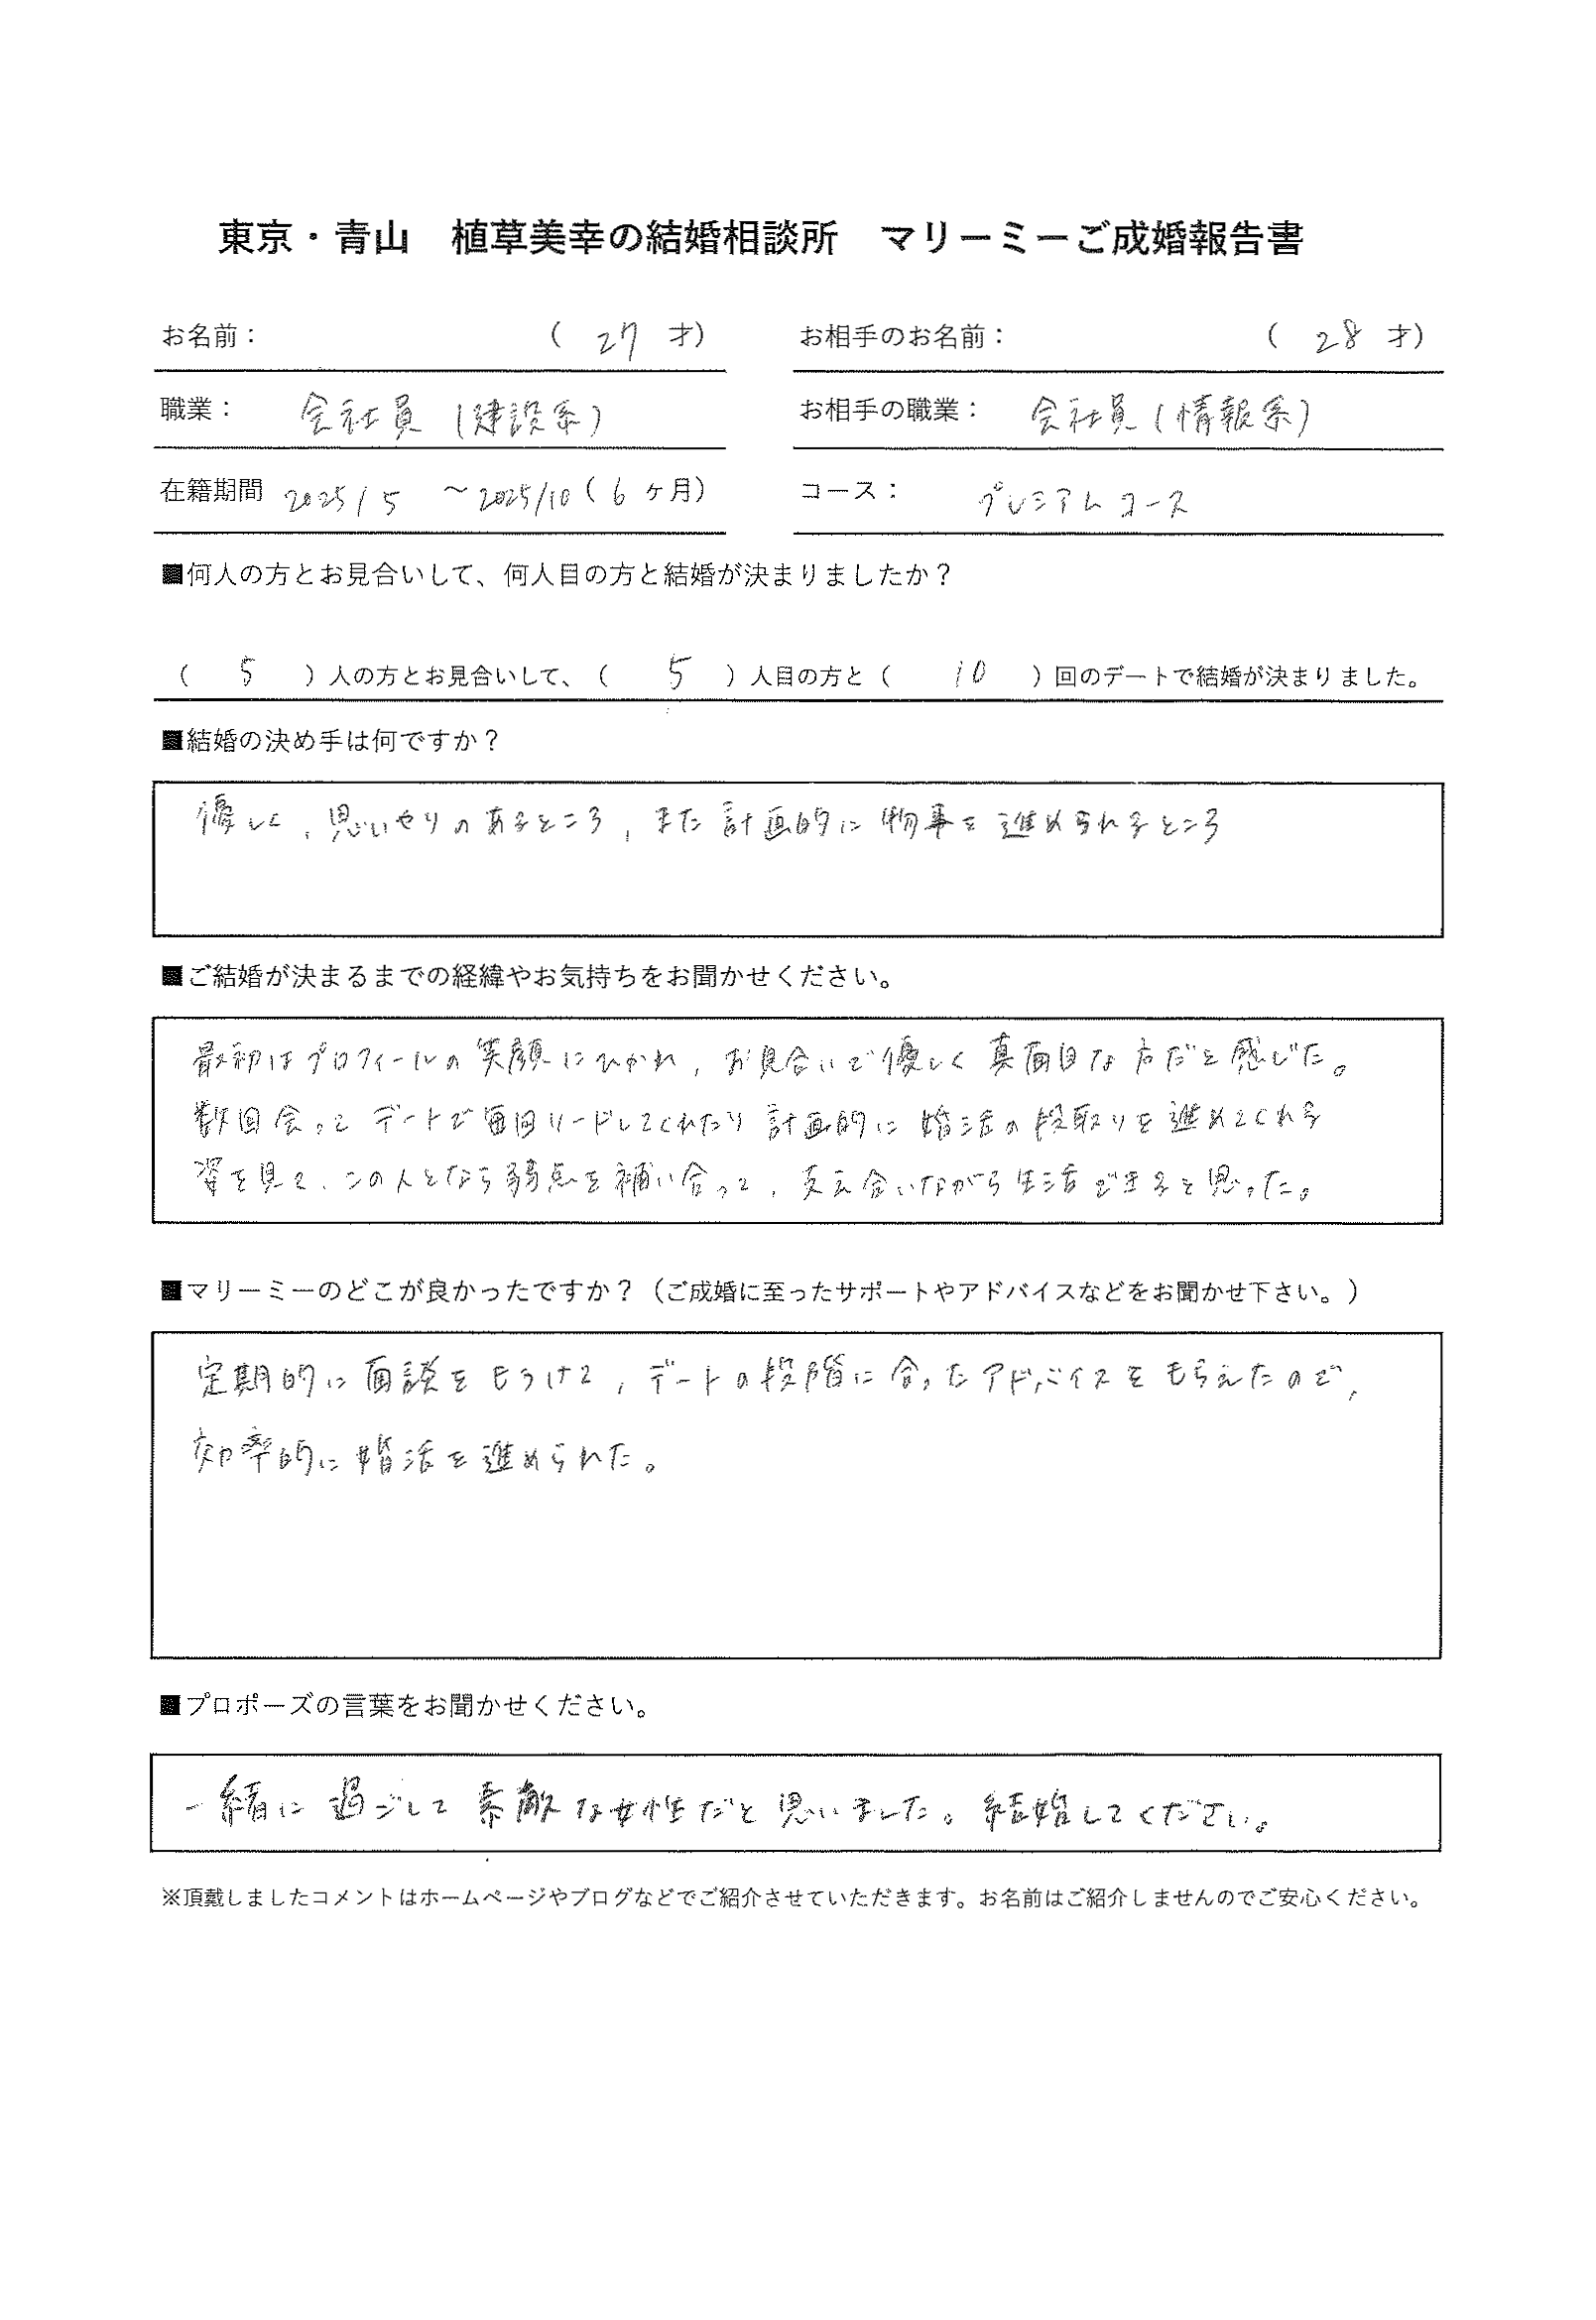 東京・青山　植草美幸の結婚相談所　マリーミーご成婚報告書
お名前：　（ 27 才）　お相手のお名前：　（ 28 才）
職業：　会社員（建設系）　お相手の職業：　会社員（情報系）
在籍期間 2025/5 ～2025/10（ 6 ヶ月）　コース：　プレミアムコース
■何人の方とお見合いして、何人目の方と結婚が決まりましたか？
（ 5 ）人の方とお見合いして、（ 5 ）人目の方と（ 10 ）回のデートで結婚が決まりました。
■結婚の決め手は何ですか？
優しく、思いやりのあるところ、また計画的に物事を進められるところ
■ご結婚が決まるまでの経緯やお気持ちをお聞かせください。
最初はプロフィールの笑顔にひかれ、お見合いで優しく真面目な方だと感じた。
数回会ってデートで毎回リードしてくれたり計画的に婚活の段取りを進めてくれる
姿を見て、この人となら弱点を補い合って、支え合いながら生活できると思った。
■マリーミーのどこが良かったですか？（ご成婚に至ったサポートやアドバイスなどをお聞かせ下さい。）
定期的に面談をもうけて、デートの段階に合ったアドバイスをもらえたので、
効率的に婚活を進められた。
■プロポーズの言葉をお聞かせください。
一緒に過ごして素敵な女性だと思いました。結婚してください。
※頂戴しましたコメントはホームページやブログなどでご紹介させていただきます。お名前はご紹介しませんのでご安心ください。